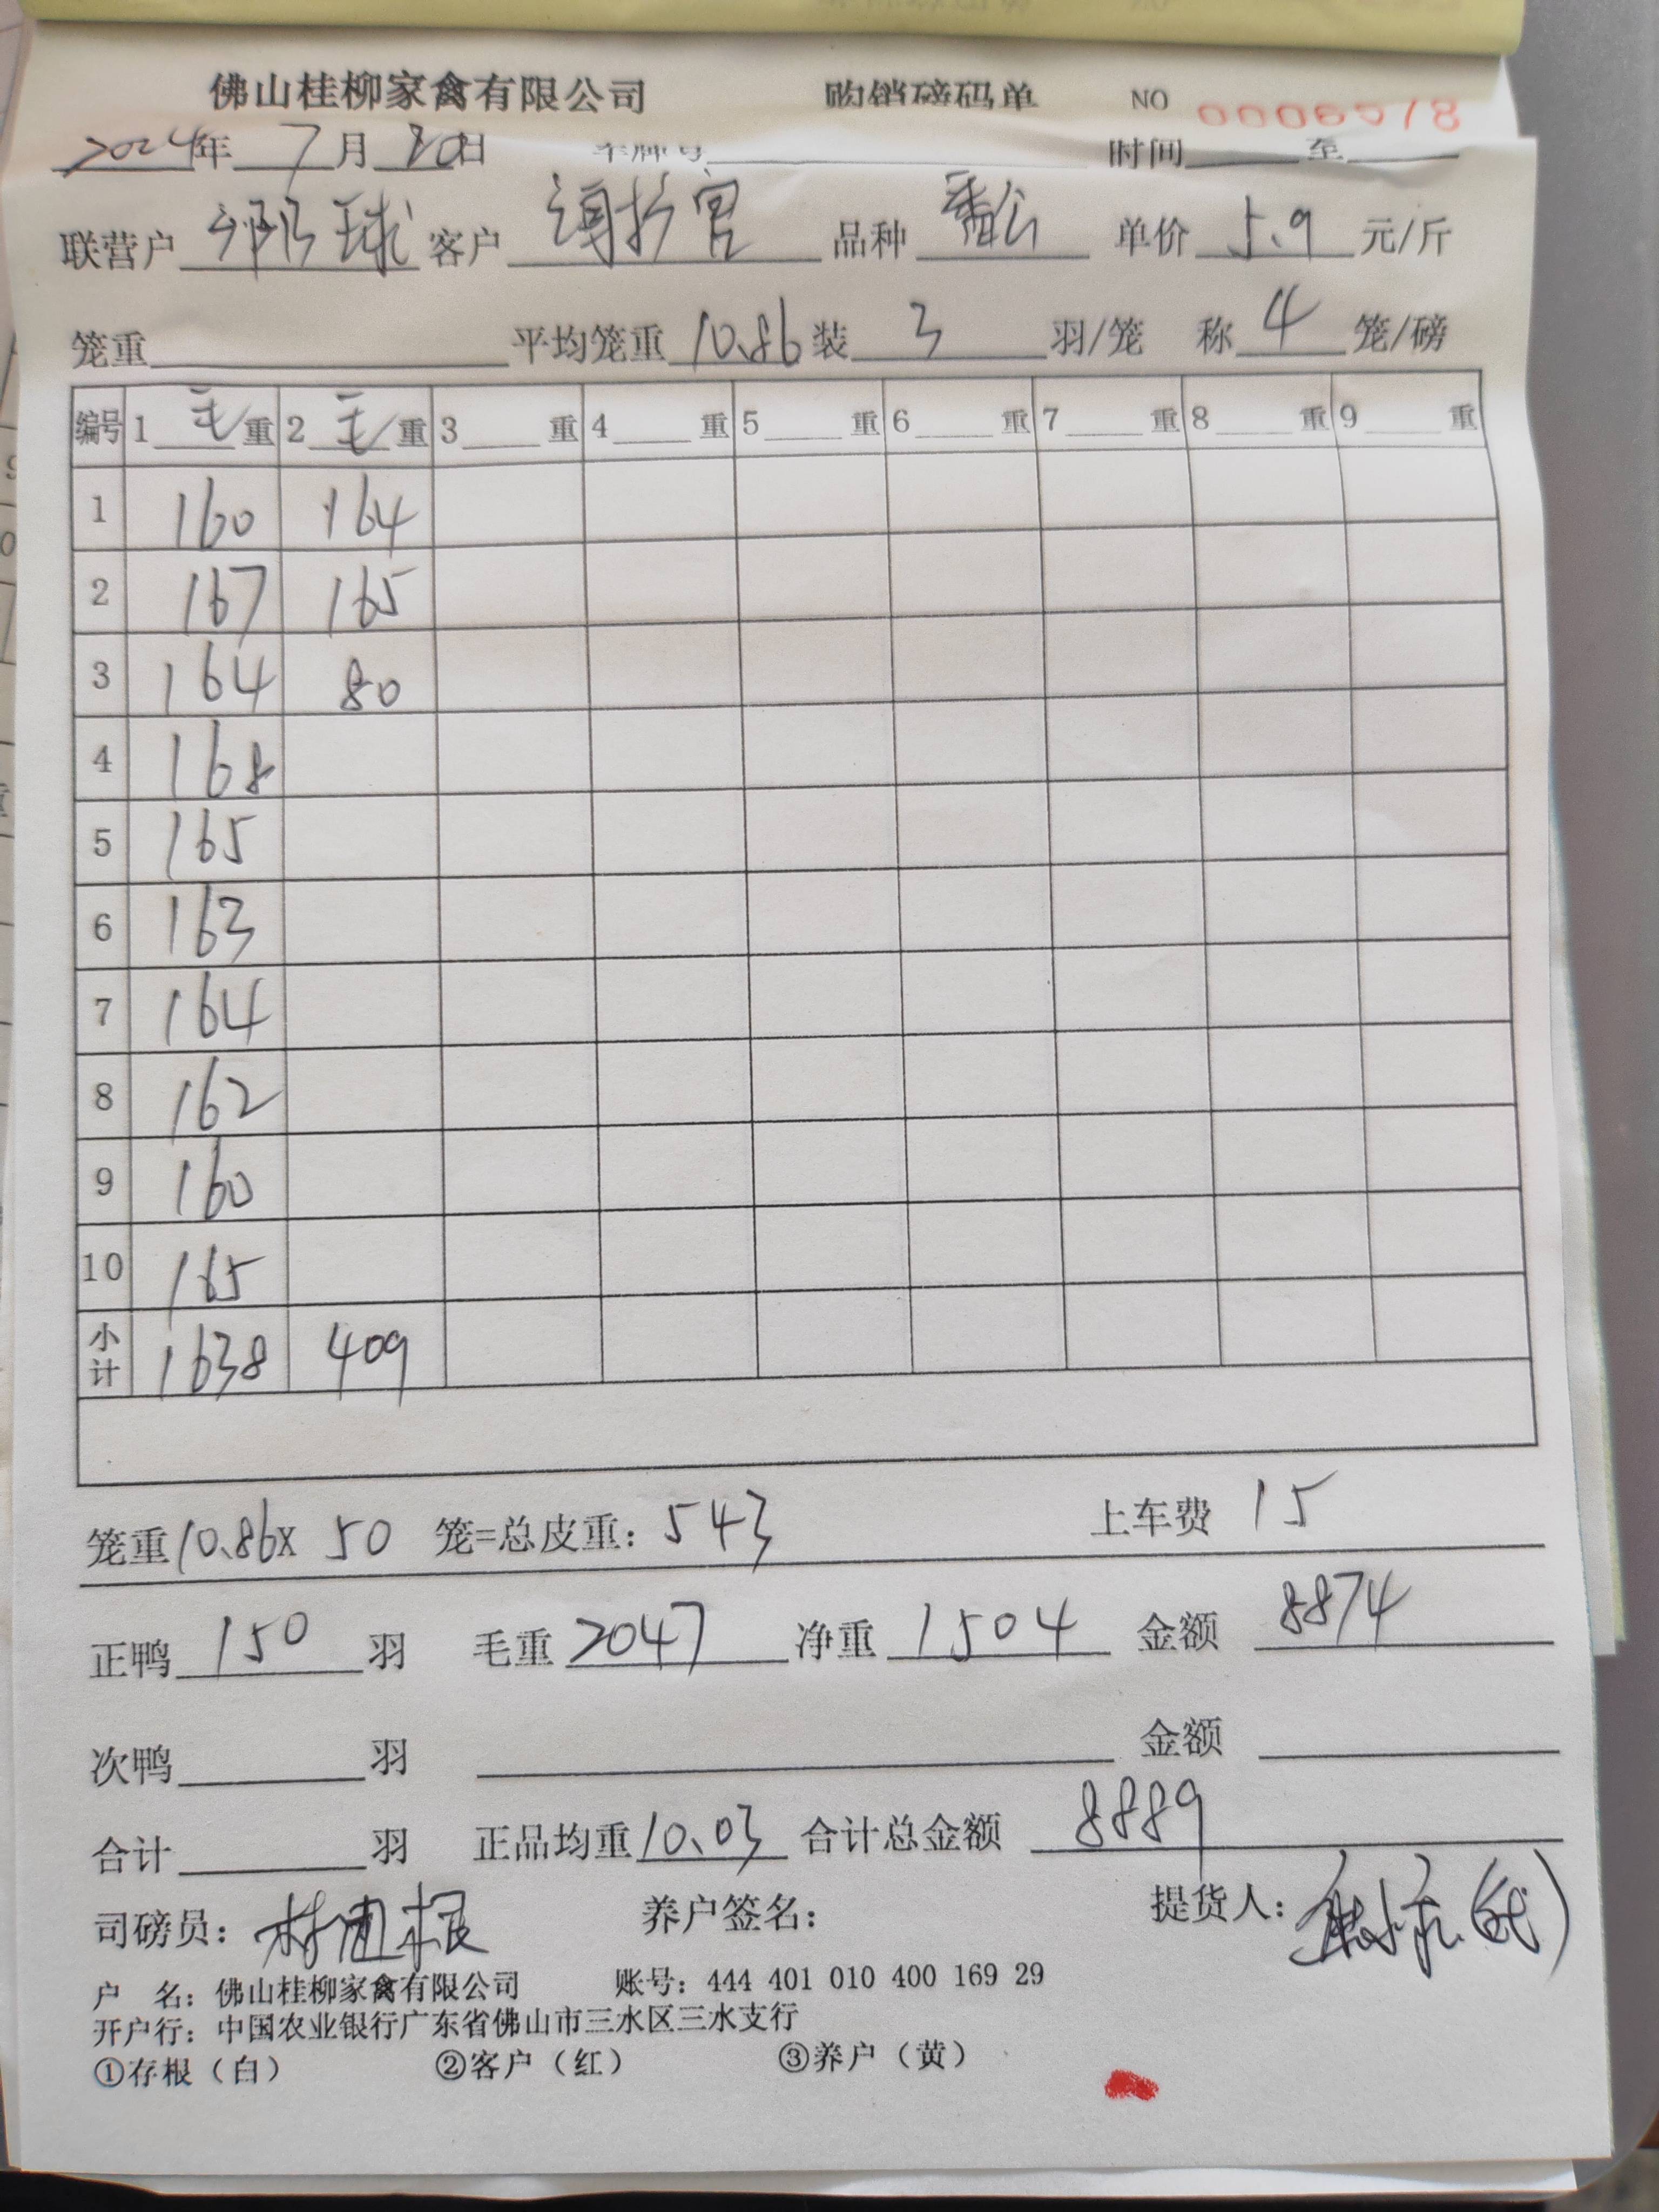 佛山桂柳家禽有限公司 购销磅码单 NO
2024年 7月 20日 车牌号 时间 至
联营户 球 客户 品种 番公 单价 5.9 元/斤
笼重 平均笼重 10.86 装 3 羽/笼 称 4 笼/磅
编号 1 毛 重 2 毛 重 3 重 4 重 5 重 6 重 7 重 8 重 9 重
1 160 164
2 167 165
3 164 80
4 168
5 165
6 163
7 164
8 162
9 160
10 165
小计 1638 409
笼重 10.86x 50 笼=总皮重: 543 上车费 15
正鸭 150 羽 毛重 2047 净重 1504 金额 8874
次鸭 羽 金额
合计 羽 正品均重 10.03 合计总金额 8889
司磅员: 养户签名: 提货人:
户 名: 佛山桂柳家禽有限公司 账号: 444 401 010 400 169 29
开户行: 中国农业银行广东省佛山市三水区三水支行
①存根（白） ②客户（红） ③养户（黄）